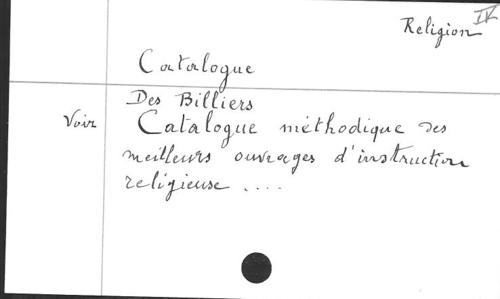 IV
Religion
Catalogue
Des Billiers
Voir Catalogue méthodique des
meilleurs ouvrages d'instruction
religieuse ....